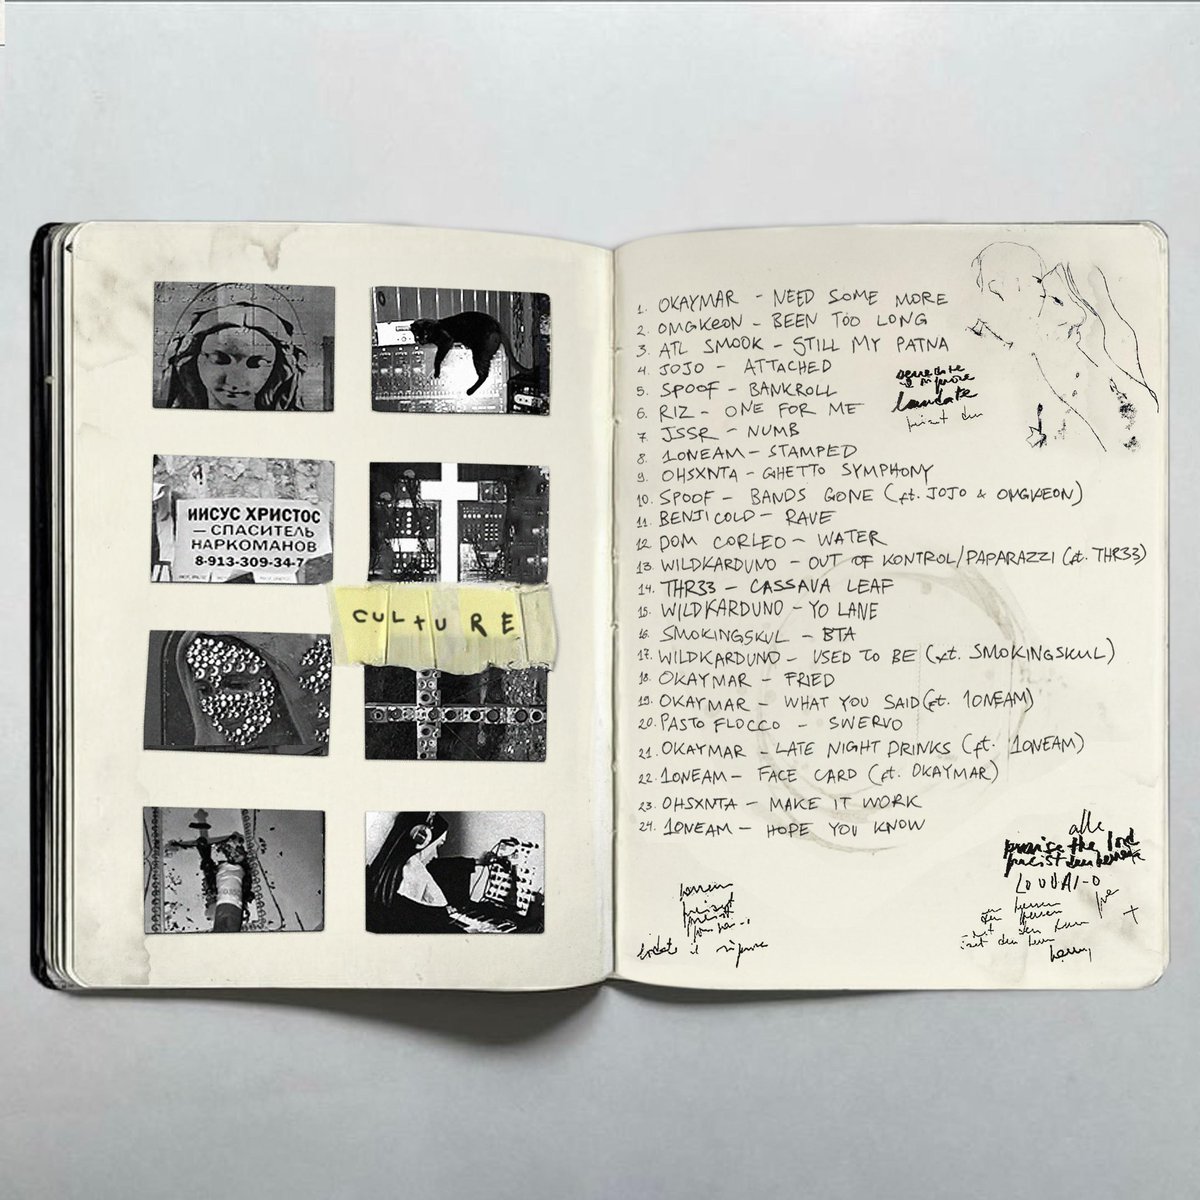 ИИСУС ХРИСТОС
— СПАСИТЕЛЬ
НАРКОМАНОВ
8-913-309-34-7
CULtURE
1. OKAYMAR - NEED SOME MORE
2. OMGKEON - BEEN TOO LONG
3. ATL SMOOK - STILL MY PATNA
4. JOJO - ATTACHED
5. SPOOF - BANKROLL
6. RIZ - ONE FOR ME
7. JSSR - NUMB
8. 1ONEAM - STAMPED
9. OHSXNTA - GHETTO SYMPHONY
10. SPOOF - BANDS GONE (ft. JOJO & OMGKEON)
11. BENJI COLD - RAVE
12. DOM CORLEO - WATER
13. WILDKARDUNO - OUT OF KONTROL/PAPARAZZI (ft. THR33)
14. THR33 - CASSAVA LEAF
15. WILDKARDUNO - YO LANE
16. SMOKINGSKUL - BTA
17. WILDKARDUNO - USED TO BE (ft. SMOKINGSKUL)
18. OKAYMAR - FRIED
19. OKAYMAR - WHAT YOU SAID (ft. 1ONEAM)
20. PASTO FLOCCO - SWERVO
21. OKAYMAR - LATE NIGHT DRINKS (ft. 1ONEAM)
22. 1ONEAM - FACE CARD (ft. OKAYMAR)
23. OHSXNTA - MAKE IT WORK
24. 1ONEAM - HOPE YOU KNOW
laudate
alle
praise the lord